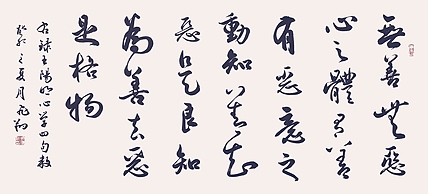 無善無惡
心之體有善
有惡意之
動知善知
惡是良知
為善去惡
是格物
右録王陽明心学四句教
癸卯之夏月